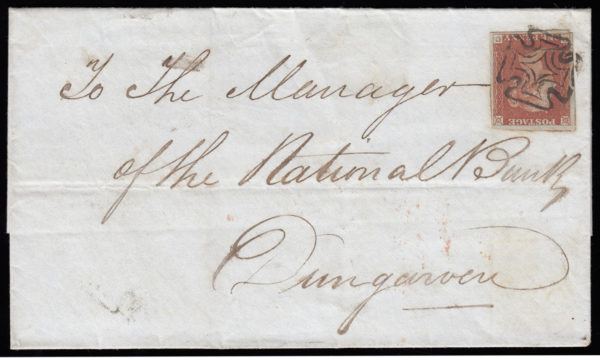 To The Manager
of the National Bank
Dungarven
POSTAGE